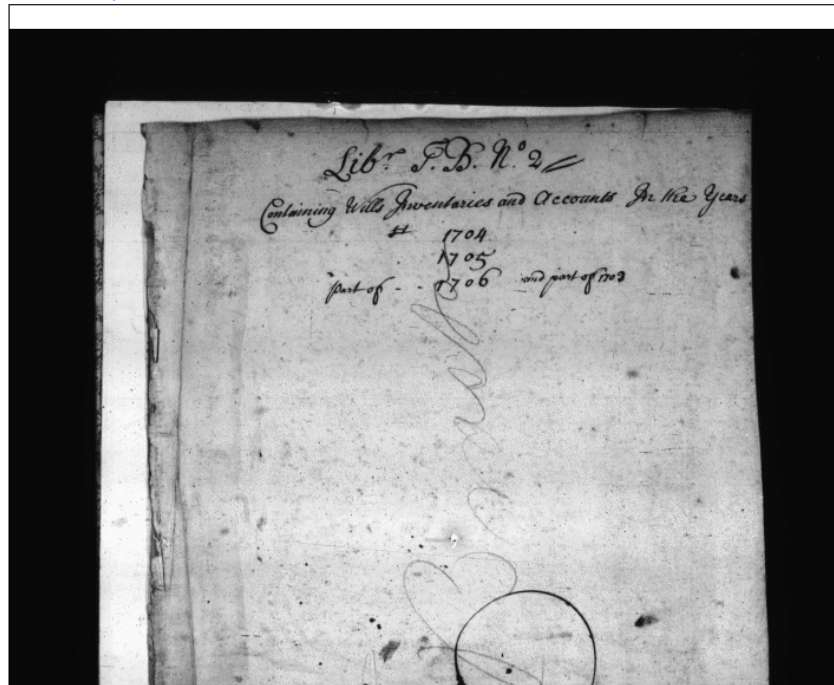 Libr T. B. No 2
Containing Wills Inventaries and Accounts In the Years
1704
1705
Part of - - 1706 and part of 1703